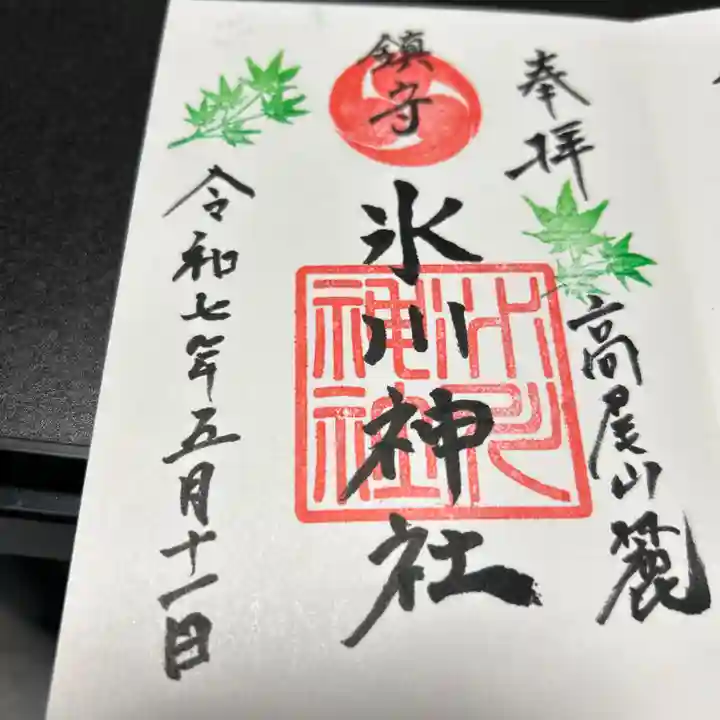 奉拝
高尾山麓
鎮守
氷川神社
氷川
神社
令和七年五月十一日